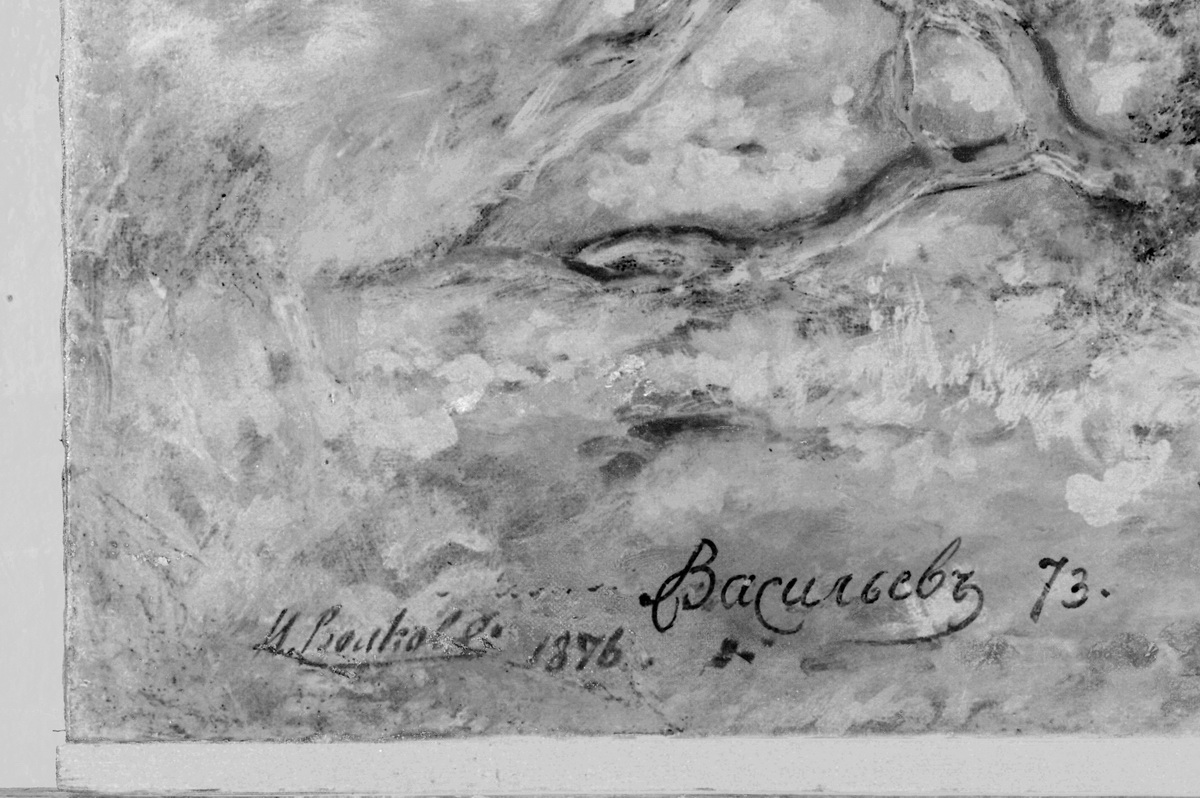 Васильевъ 73.
И. Волковъ. 1876.